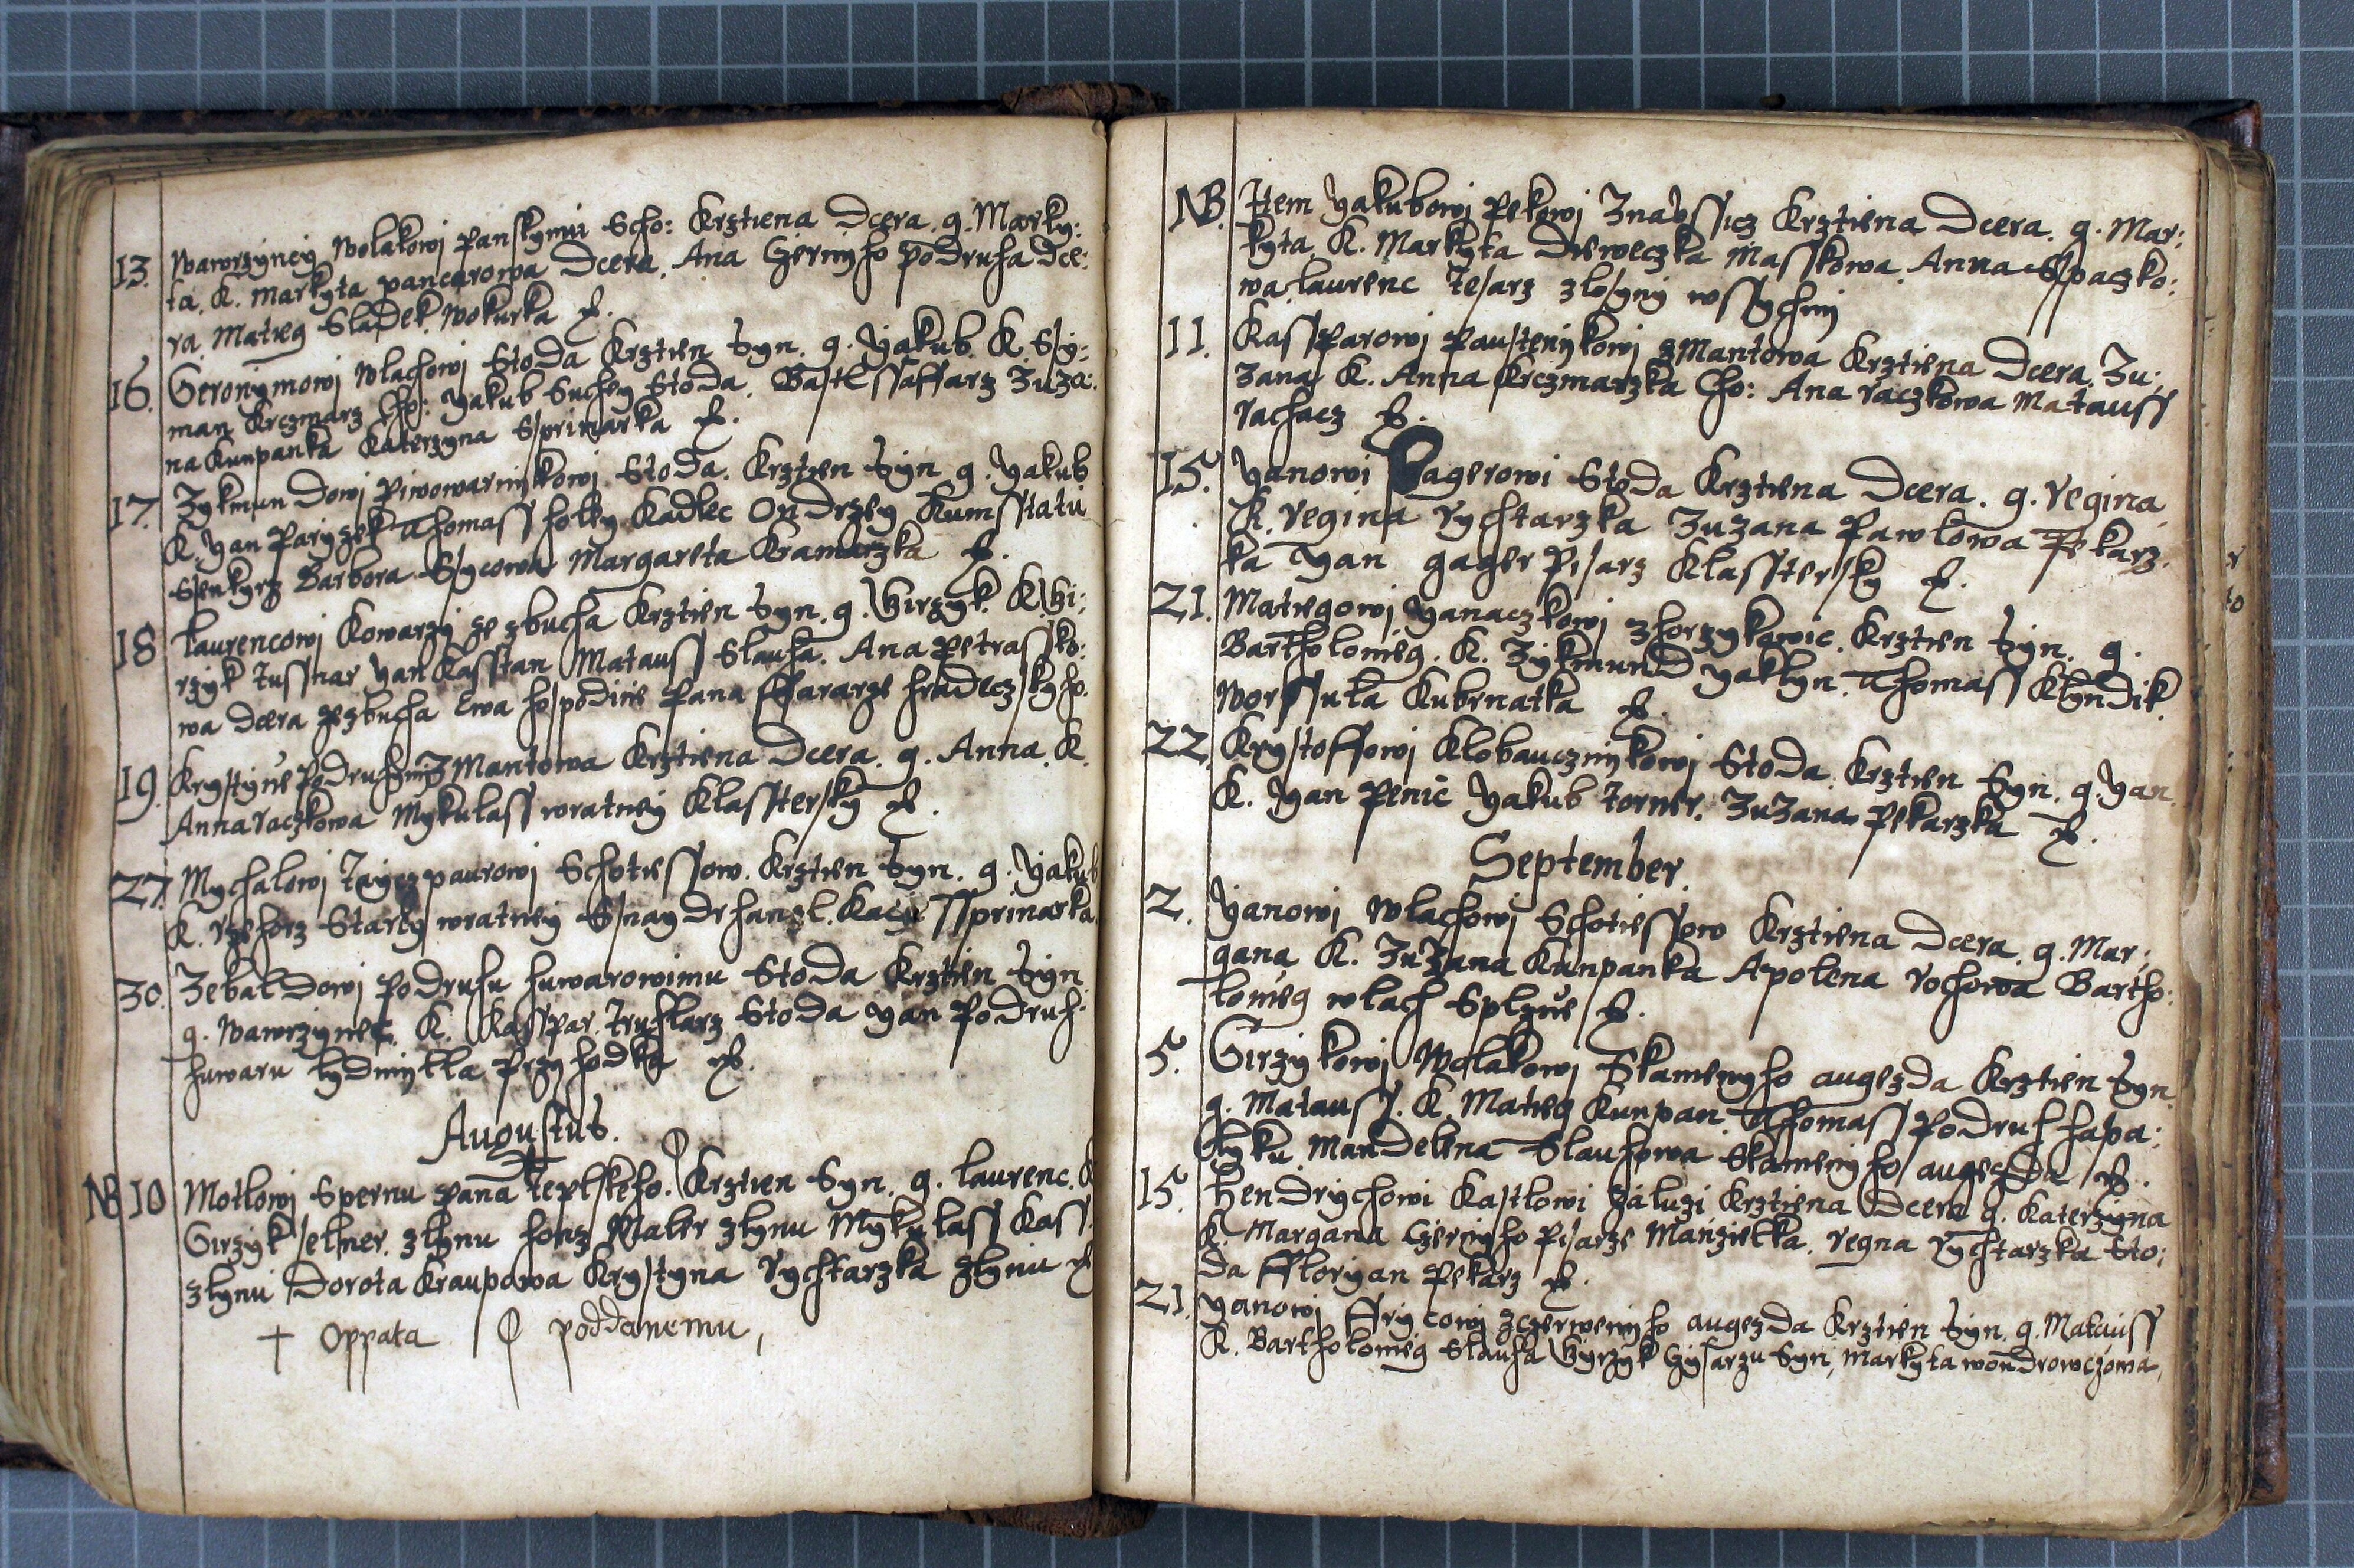 13. Wawrzynczy Wolakowj Panskymu Scho: Krztiena Dcera. g. Marky:
ta. K. Markyta pancerowa Dcera. Ana Czernyho podruha dce:
ra. Matieg Sladek. Wokurka
16. Geronymowj Wlachowj Stoda Krztien Syn. g. Yakub. K. Sy:
man Krczmarz Cho: Yakub Suchey Stoda. Bastl ssaffarz Zuza:
na Kunpanka Katerzyna Sprinarka
17. Zykmundowj Piwowarnykowj Stoda. Krztien Syn g. Yakub
K. Yan Paryzek Thomass holky Kadlec Ondrzey Kumsstatu
Ssenkyrz Barbora Sycowa Margareta Kramarzka
18 Laurencowj Kowarzy ze zbucha Krztien Syn. g. Girzyk. K. Gi:
rzyk Tussnar Yan Kasstan Matauss Slauha. Ana Petrassko:
wa dcera ze zbucha Ewa hospodinie Pana ffararze hradeczskyho.
19. Krystynie Podruhyni Z Mantowa Krztiena Dcera. g. Anna. K.
Anna raczkowa Mykulass wratney Klasstersky
27. Mychalowj Tayczpaurowj Schotiessow. Krztien Syn. g. Yakub
K. rzehorz Starey wratney Snaydrhanzl. Kacze Ssprinarka.
30. Zebaldowj Podruhu huwarowimu Stoda Krztien Syn
g. Wawrzynec. K. Kasspar. Truhlarz Stoda Yan Podruh.
huwaru Lydmylla Przyhodka
Augustus.
NB 10 Motlowj Spernu pana Teplskeho. Krztien Syn. g. Laurenc. K
Girzyk selner. zlynu honz Maler zlynu Mykulass Kass.
zlynu Dorota Kraupowa Krystyna Rychtarzka zlynu
+ Oppata poddanemu,
NB. Item Yakubowj Pekowj Znabssicz Krztiena Dcera. g. Mar:
kyta. K. Markyta dieweczka Masskowa. Anna Spaczko:
wa. Laurenc Tesarz zlosyny wssychny
11. Kassparowj Paustenykowj z Mantowa Krztiena Dcera. Zu:
zana K. Anna Krczmarzka Cho: Ana raczkowa Matauss
rachacz
15. Yanowi Gagerowi Stoda Krztiena Dcera. g. Regina
K. Regina Rychtarzka Zuzana Pawlowa Pekarz.
ka Yan gager Pisarz Klasstersky
21. Matiegowj Yanaczkowj zhorzykowic. Krztien Syn. g.
Bartholomieg. K. Zykmund Yaklyn. Thomass Klyndik.
Worssula Kubrnatka
22. Krystoffowj Klobaucznykowj Stoda. Krztien Syn. g. Yan.
K. Yan Penic Yakub Torner. Zuzana Pekarzka
September.
2. Yanowj Wlachowj Schotiessow Krztiena Dcera. g. Mar:
gana K. Zuzana Kunpanka Apolena Rochowa Bartho:
lomieg wlach Splzne
5. Girzykowj Wolakowj Skamenyho augezda Krztien Syn
g. Matauss. K. Matieg Kunpan. Thomass Podruh hapa:
Mandelena Slauhowa Skamenyho augezda
15. Hendrychowi Kastlowi zaluzi Krztiena Dcera g. Katerzyna
K. Margana Czernyho Pisarze Manzielka. Regna Rychtarzka Sto:
da Fflorgan Pekarz
21. Yanowj ffrycowj zczerwenyho augezda Krztien Syn. g. Matauss
K. Bartholomieg Slauha Gyrzyk Syn, Markyta wondrowczowa.